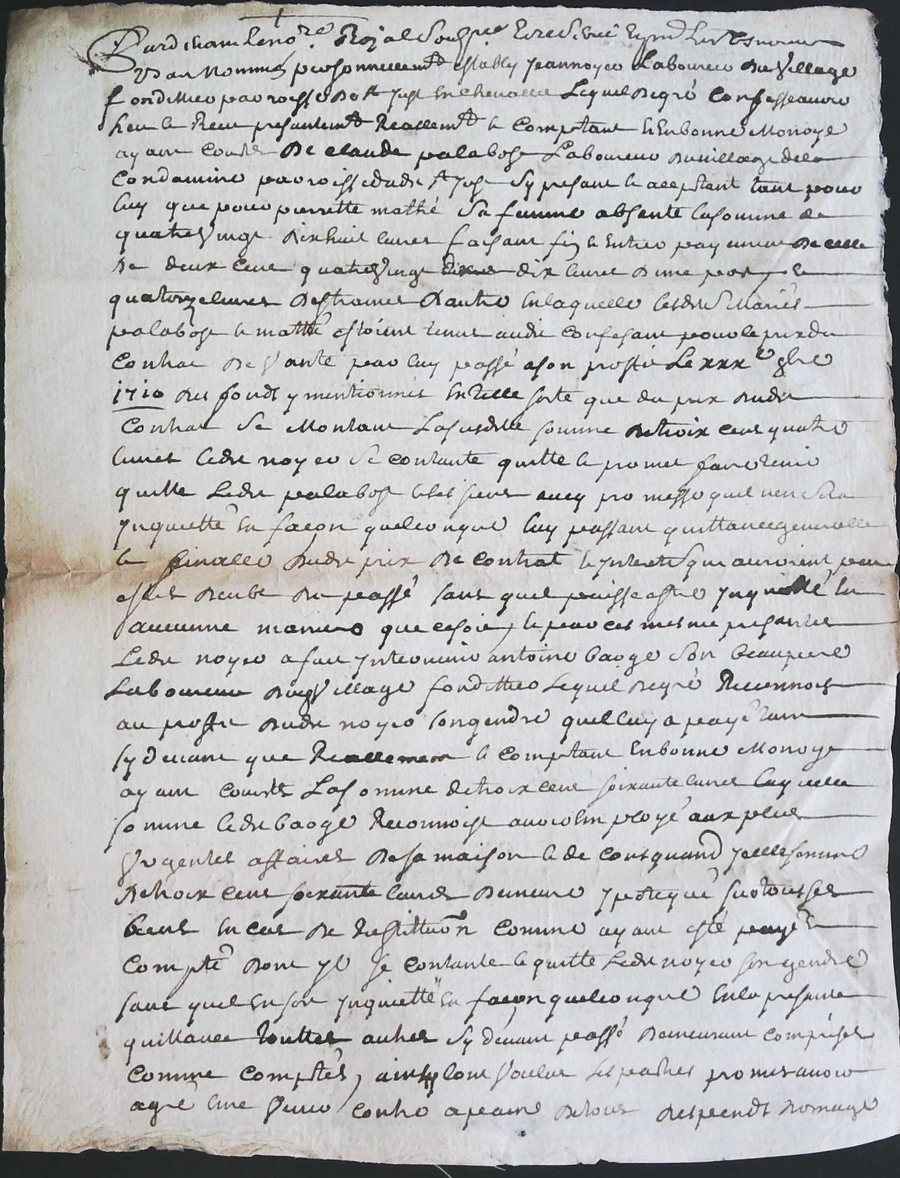 Pardevant le no.re Royal soubs.né
personnellem.t estably Jean noyer Laboureur du village
fondmieu parroisse de s.t Just en chevallet Lequel de gré confesse avoir
heu et Receu presentem.t Reallem.t et comptant en bonne Monoye
ayant Cours De claude palabost Laboureur du village de la
Condamine parroisse dud. s.t Just sy present et acceptant tant pour
luy que pour pierrette mathé sa femme absente la somme de
quatre vingt dixhuit livres faisant fin et entier payement de celle
De deux cent quatre vingt dix livres d'une part et
quatorze livres destraines d'autre en laquelle lesd. Mariés
palabost et mathé estoient tenus aud. confessant pour le prix du
Contrat De vante par luy passé a son proffit Le xxx.e
1710 Des fonds y mentionnés En telle sorte que du prix dud.
Contrat se Montant la susd. somme de trois cent quatre
livres led. noyer se contante quitte et promet faire tenir
quitte Led. palabost et les siens avec promesse quil n'en sera
Inquietté en facon quelconque luy passant quittance generalle
et finalle dud. prix de contrat et Interets qui auroient peu
estre deubs du passé sans quil puisse estre Inquietté En
aucunne maniere que ce soit, et par ces mesme presentes
Led. noyer a fait Intervenir antoine baoge son beaupere
Laboureur dud. village fondmieu Lequel de gré Reconnoit
au proffit dud. noyer son gendre quil luy a payé tant
sy devant que Reallement et comptant En bonne Monoye
ayant Cours La somme de trois cent soixante livres laquelle
somme led. baoge Reconnoist avoir Employé aux plus
urgentes affaires De sa maison et de cons quand ycelle somme
de trois cent soixante livres demeure ypotequé sur tous ses
biens en cas De Restitution comme ayant esté payé et
Compté Dont yl se contante et quitte Led. noyer son gendre
sans quil en soit Inquietté En façon quelconque En la presente
quittance touttes autres sy devant passé Demeurant comprises
comme comptés, ainsy lont voulus les parties promis avoir
agré tenir contre a peine De tous Despends domage